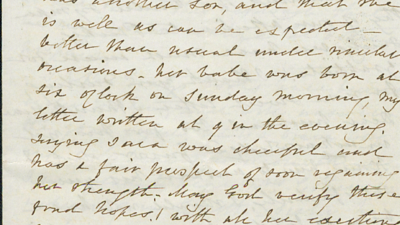 has another son, and that she
is well as can be expected -
better than usual under similar
occasions - her babe was born at
six o'clock on Sunday morning, my
letter written at 9 in the evening.
saying Sara was cheerful and
has a fair prospect of soon regaining
her strength - May God verify these
fond hopes! with all her exertions